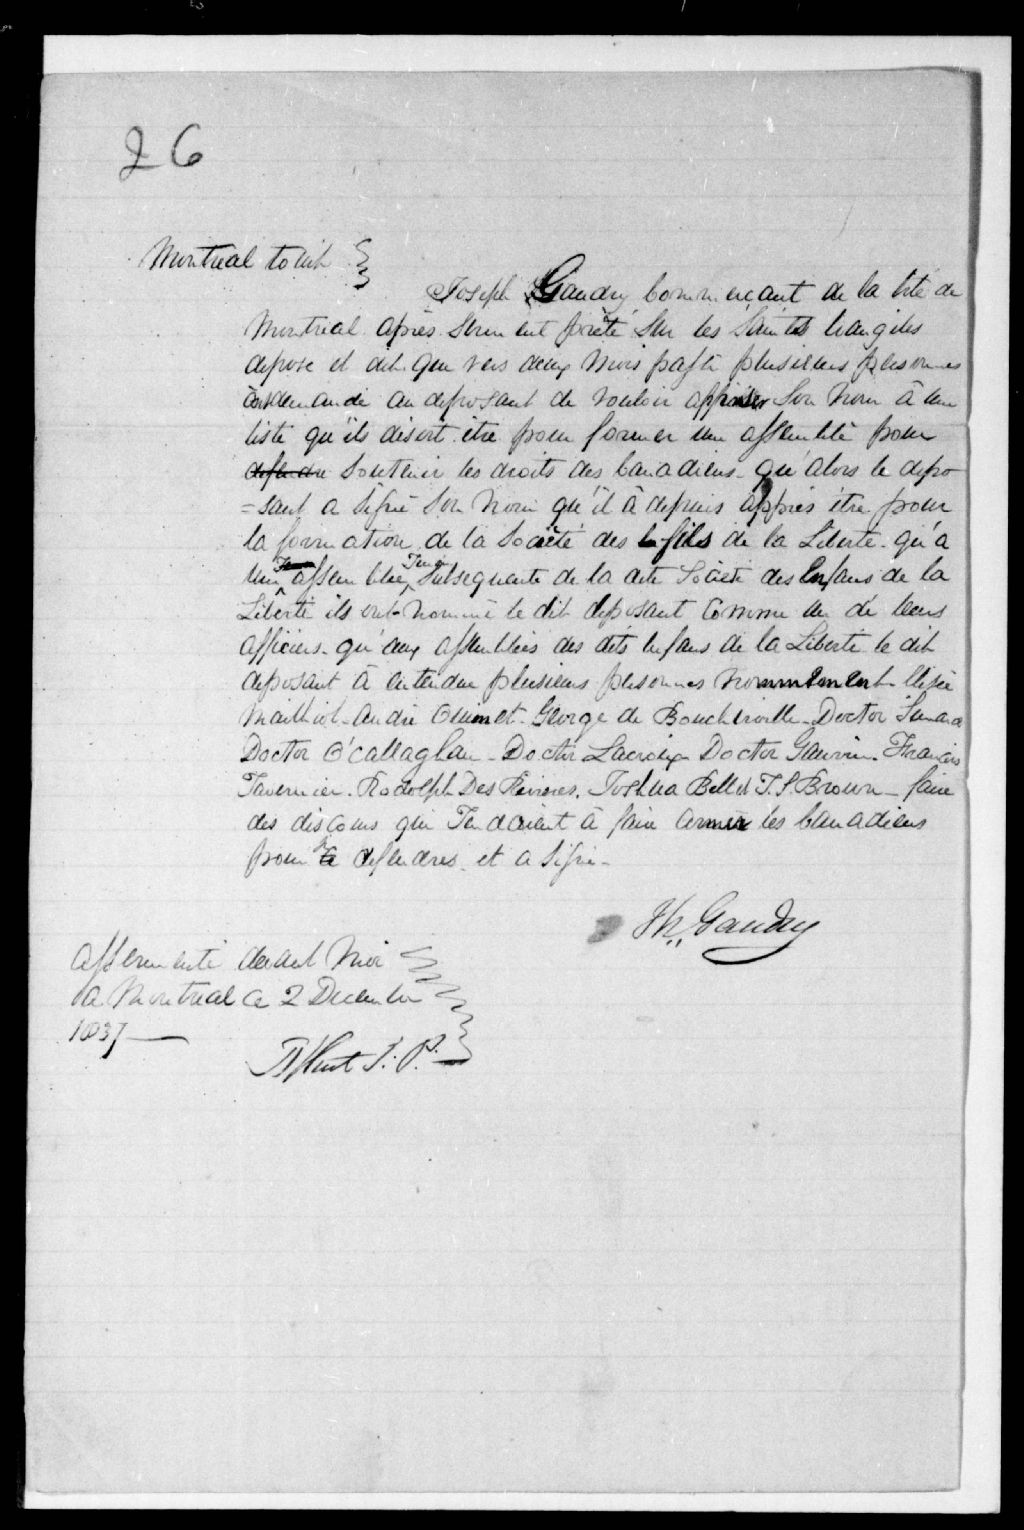 26
Montreal to wit
Joseph Gaudry Commerçant de la Cité de
Montreal après Serment prèté Sur les Saints Evangiles
depose et dit que vers deux mois passé plusieurs personnes
ont demandé au deposant de vouloir apposer Son Nom à une
liste qu'ils disoit être pour former une assemblé pour
defendre Soutenir les droits des Canadiens - qu'alors le depo
=sant a Signé Son Nom qu'il à depuis appris être pour
la formation de la Société des fils de la Liberté - qu'a
une assemblée Tenu Subsequente de la dite Société des Enfans de la
Liberté ils ont nommé le dit deposant Comme un de leurs
officiers - qu'aux assemblées des dits Enfans de la Liberté le dit
deposant à entendu plusieurs personnes nommément Elisée
Mailhiot - André Ouimet - George de Boucherville - Doctor Simard
Doctor O'Callaghan - Doctor Lacroix Doctor Gauvin. François
Tavernier. Rodolph Des Rivieres. Joshua Bell et T. S. Brown - faire
des discours qui Tendaient à faire armer les Canadiens
pour se defendres et a Signé -
Jh. Gaudry
Assermenté devant Moi
a Montreal ce 2 Decembre
1837 —
J. P.